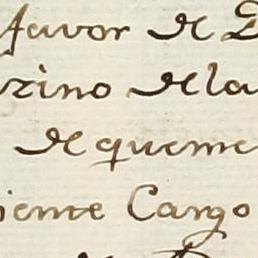 favor de D
rino dela
de queme
iente Cargo